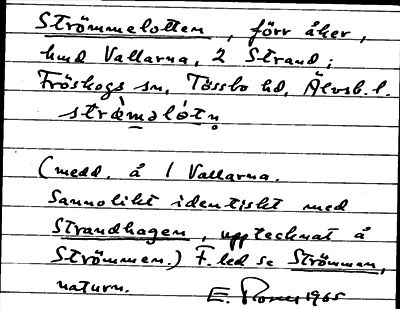 Strömmelotten, förr åker,
hmd Vallarna, 2 Strand;
Fröskogs sn, Tössbo hd, Älvsb. l.
strø̀məlótn̥
(medd. å 1 Vallarna.
Sannolikt identiskt med
Strandhagen, upptecknat å
Strömmen.) F. led se Strömmen,
naturn.
E. 1965